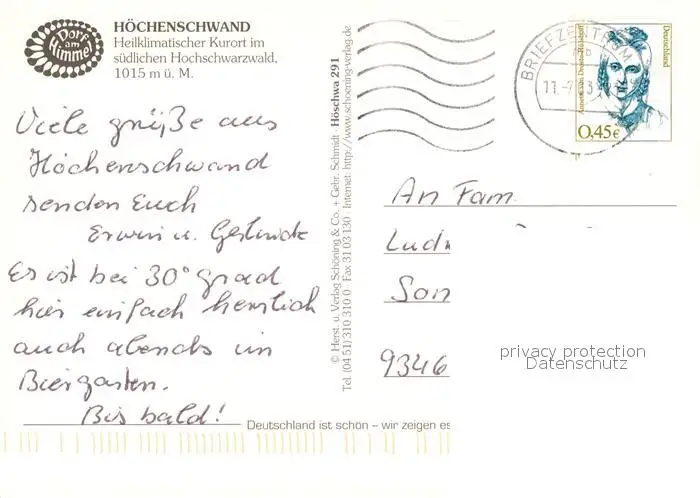 Dorf
am
Himmel
HÖCHENSCHWAND
Heilklimatischer Kurort im
südlichen Hochschwarzwald,
1015 m ü. M.
Viele grüße aus
Höchenschwand
senden Euch
Erwin u. Gertrude
Es ist bei 30° grad
hier einfach herrlich
auch abends im
Biergarten.
Bis bald!
© Herst. u. Verlag Schöning & Co. + Gebr. Schmidt · Höschwa 291
Tel. (04 51) 310 310 0 · Fax 31 03 130 · Internet: http://www.schoening-verlag.de
BRIEFZENTRUM
Annette von Droste-Hülshoff
Deutschland
0,45€
An Fam.
Lud
Son
9346
privacy protection
Datenschutz
Deutschland ist schön – wir zeigen es